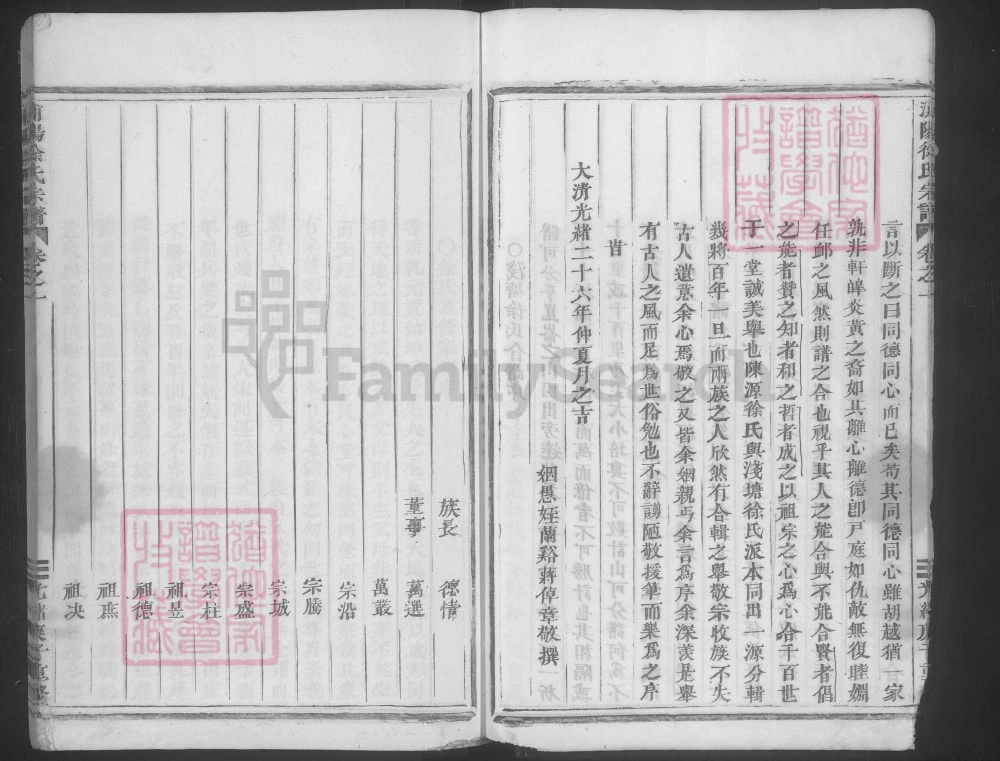 言以斷之曰同德同心而已矣苟其同德同心雖胡越猶一家
孰非軒皞炎黃之裔如其離心離德卽戸庭如仇敵無復睦婣
任卹之風然則譜之合也視乎其人之能合與不能合賢者倡
之能者贊之知者和之哲者成之以祖宗之心爲心合千百世
于一堂誠美舉也陳源徐氏與淺塘徐氏派本同出一源分輯
幾將百年一旦而兩族之人欣然有合輯之舉敬宗收族不失
古人遺意余心焉敬之又皆余姻親丐余言爲序余深羨是舉
有古人之風而足爲世俗勉也不辭譾陋敬援筆而樂爲之序
旹
大清光緒二十六年仲夏月之吉
姻愚姪蘭谿蔣倬章敬撰
族長 德情
董事 萬選
萬叢
宗沿
宗騰
宗城
宗盛
宗柱
祖昱
祖德
祖庶
祖决
徐氏宗譜 卷之一
FamilySearch